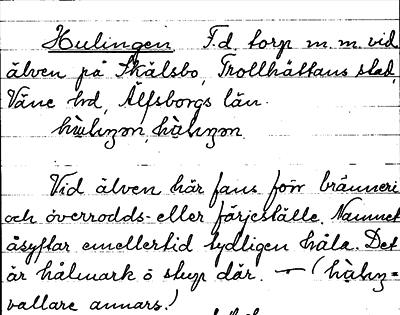 Hulingen F.d. torp m.m. vid
älven på Skälsbo, Trollhättans stad,
Väne hd, Älfsborgs län.
Vid älven här fans förr bränneri
och överrodds- eller färjeställe. Namnet
åsyftar emellertid tydligen håla. Det
är hålmark o stup där. — (
vallare annars.)